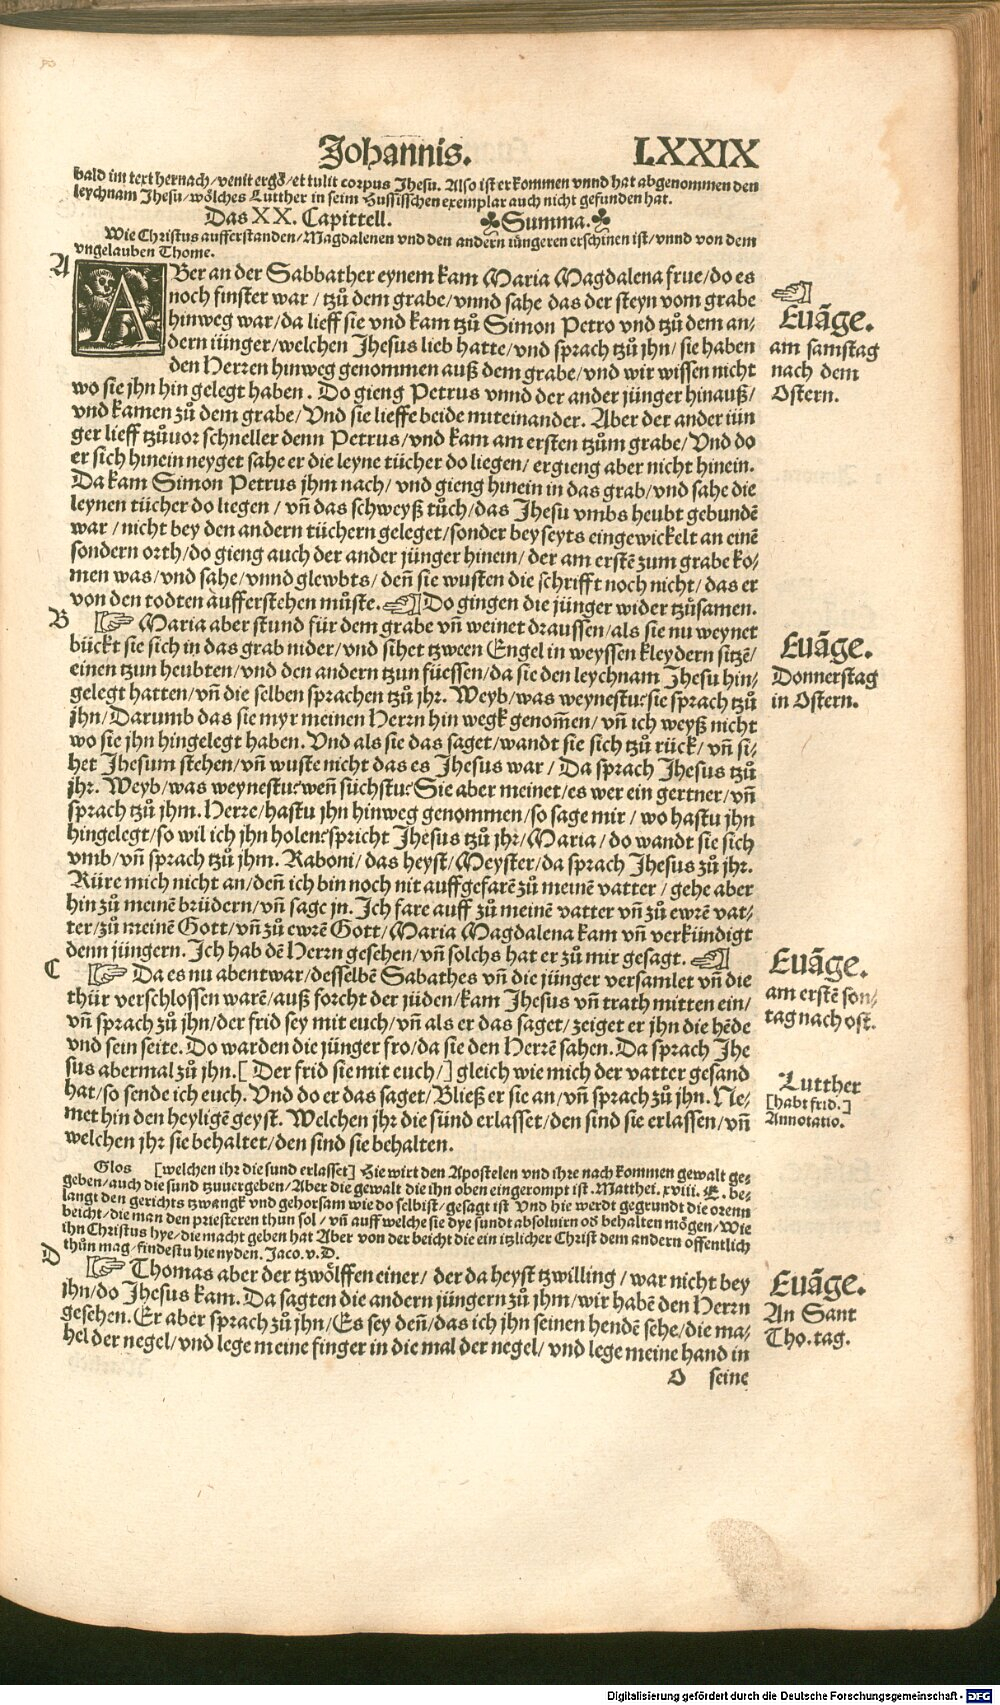 Johannis. LXXIX
bald im text hernach/venit ergo/et tulit corpus Jhesu. Also ist er kommen vnnd hat abgenommen den
leychnam Jhesu/wölches Lutther in seim Hussisschen exemplar auch nicht gefunden hat.
Das XX. Capittell. Summa.
Wie Christus aufferstanden/Magdalenen vnd den andern iüngeren erschinen ist/vnnd von dem
vngelauben Thome.
A
ABer an der Sabbather eynem kam Maria Magdalena frue/do es
noch finster war/tzů dem grabe/vnnd sahe das der steyn vom grabe
hinweg war/da lieff sie vnd kam tzů Simon Petro vnd tzů dem an/
dern iünger/welchen Jhesus lieb hatte/vnd sprach tzů jhn/sie haben
den Herren hinweg genommen auß dem grabe/vnd wir wissen nicht
wo sie jhn hin gelegt haben. Do gieng Petrus vnnd der ander jünger hinauß/
vnd kamen zů dem grabe/Vnd sie lieffe beide miteinander. Aber der ander iün
ger lieff tzůuor schneller denn Petrus/vnd kam am ersten tzům grabe/Vnd do
er sich hinein neyget sahe er die leyne tücher do liegen/ergieng aber nicht hinein.
Da kam Simon Petrus jhm nach/vnd gieng hinein in das grab/vnd sahe die
leynen tücher do liegen/vñ das schweyß tůch/das Jhesu vmbs heubt gebundẽ
war/nicht bey den andern tüchern geleget/sonder beyseyts eingewickelt an einẽ
sondern orth/do gieng auch der ander jünger hinein/der am erstẽ zum grabe ko/
men was/vnd sahe/vnnd glewbts/deñ sie wusten die schrifft noch nicht/das er
von den todten aufferstehen můste. Do gingen die jünger wider tzůsamen.
Euãge.
am samstag
nach dem
Ostern.
B
Maria aber stund für dem grabe vñ weinet draussen/als sie nu weynet
bückt sie sich in das grab nider/vnd sihet tzween Engel in weyssen kleydern sitzẽ/
einen tzun heubten/vnd den andern tzun füessen/da sie den leychnam Jhesu hin/
gelegt hatten/vñ die selben sprachen tzů jhr. Weyb/was weynestu? sie sprach tzů
jhn/Darumb das sie myr meinen Herrn hin wegk genom̃en/vñ ich weyß nicht
wo sie jhn hingelegt haben. Vnd als sie das saget/wandt sie sich tzů rück/vñ si/
het Jhesum stehen/vñ wuste nicht das es Jhesus war/Da sprach Jhesus tzů
jhr. Weyb/was weynestu? weñ süchstu? Sie aber meinet/es wer ein gertner/vñ
sprach tzů jhm. Herre/hastu jhn hinweg genommen/so sage mir/wo hastu jhn
hingelegt/so wil ich jhn holen? spricht Jhesus tzů jhr/Maria/do wandt sie sich
vmb/vñ sprach tzů jhm. Raboni/das heyst/Meyster/da sprach Jhesus zů jhr.
Rüre mich nicht an/deñ ich bin noch nit auffgefarẽ zů meinẽ vatter/gehe aber
hin zů meinẽ brüdern/vñ sage jn. Ich fare auff zů meinẽ vatter vñ zů ewrẽ vat/
ter/zů meinẽ Gott/vñ zů ewrẽ Gott/Maria Magdalena kam vñ verkündigt
denn jüngern. Ich hab dẽ Herrn gesehen/vñ solchs hat er zů mir gesagt.
Euãge.
Donnerstag
in Ostern.
C
Da es nu abent war/desselbẽ Sabathes vñ die jünger versamlet vñ die
thür verschlossen warẽ/auß forcht der jüden/kam Jhesus vñ trath mitten ein/
vñ sprach zů jhn/der frid sey mit euch/vñ als er das saget/zeiget er jhn die hẽde
vnd sein seite. Do warden die jünger fro/da sie den Herrẽ sahen. Da sprach Jhe
sus abermal zů jhn.[ Der frid sie mit euch/] gleich wie mich der vatter gesand
hat/so sende ich euch. Vnd do er das saget/Bließ er sie an/vñ sprach zů jhn. Ne/
met hin den heyligẽ geyst. Welchen jhr die sünd erlasset/den sind sie erlassen/vñ
welchen jhr sie behaltet/den sind sie behalten.
Euãge.
am erstẽ son/
tag nach ost.
Lutther
[habt frid.]
Annotatio.
Glos [welchen ihr die sund erlasset] Hie wirt den Apostelen vnd ihre nach kommen gewalt ge/
geben/auch die sund tzuuergeben/Aber die gewalt die ihn oben eingerompt ist. Matthei. xviii. E. be/
langt den gerichts tzwangk vnd gehorsam wie do selbist/gesagt ist Vnd hie werdt gegrundt die orenn
beicht/die man den priesteren thun sol/vñ auff welche sie dye sundt absoluirn oð behalten mögen/Wie
ihn Christus hye/die macht geben hat Aber von der beicht die ein itzlicher Christ dem andern offentlich
thůn mag/findestu hie nyden. Jaco. v. D.
D
Thomas aber der tzwölffen einer/der da heyst tzwilling/war nicht bey
ihn/do Jhesus kam. Da sagten die andern jüngern zů jhm/wir habẽ den Herrn
gesehen. Er aber sprach zů jhn/Es sey deñ/das ich jhn seinen hendẽ sehe/die ma/
hel der negel/vnd lege meine finger in die mal der negel/vnd lege meine hand in
Euãge.
An Sant
Tho. tag.
O seine
Digitalisierung gefördert durch die Deutsche Forschungsgemeinschaft - DFG